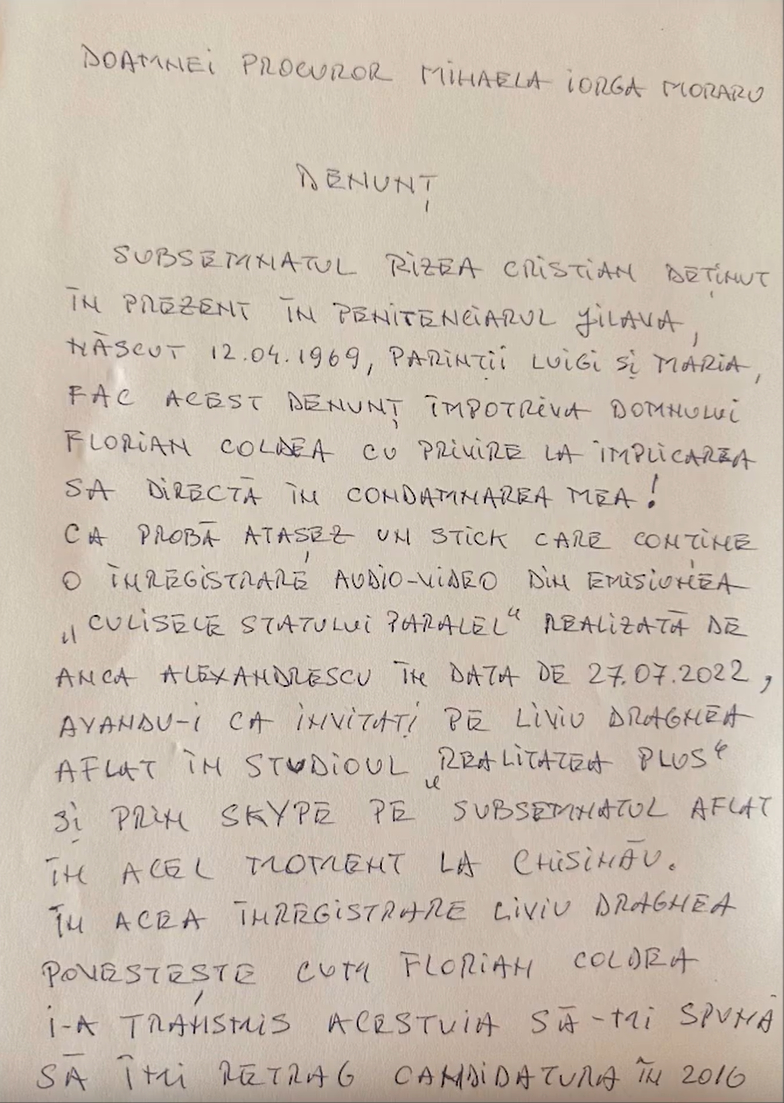 DOAMNEI PROCUROR MIHAELA IORGA MORARU
DENUNȚ
SUBSEMNATUL RIZEA CRISTIAN DEȚINUT
ÎN PREZENT ÎN PENITENCIARUL JILAVA,
NĂSCUT 12.04.1969, PARINȚII LUIGI ȘI MARIA,
FAC ACEST DENUNȚ ÎMPOTRIVA DOMNULUI
FLORIAN COLDEA CU PRIVIRE LA IMPLICAREA
SA DIRECTĂ ÎN CONDAMNAREA MEA!
CA PROBĂ ATAȘEZ UN STICK CARE CONȚINE
O ÎNREGISTRARE AUDIO-VIDEO DIN EMISIUNEA
„CULISELE STATULUI PARALEL“ REALIZATĂ DE
ANCA ALEXANDRESCU ÎN DATA DE 27.07.2022,
AVANDU-I CA INVITAȚI PE LIVIU DRAGNEA
AFLAT ÎN STUDIOUL „REALITATEA PLUS“
ȘI PRIN SKYPE PE SUBSEMNATUL AFLAT
ÎN ACEL MOMENT LA CHISINĂU.
ÎN ACEA ÎNREGISTRARE LIVIU DRAGNEA
POVESTEȘTE CUM FLORIAN COLDEA
I-A TRANSMIS ACESTUIA SĂ-MI SPUNĂ
SĂ ÎMI RETRAG CANDIDATURA ÎN 2016